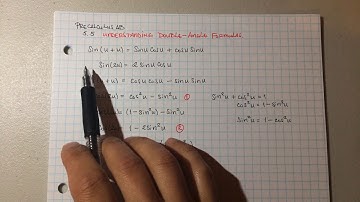 PRECALCULUS AB
5.5 UNDERSTANDING DOUBLE-ANGLE FORMULAS
Sin(u+u) = Sinu Cosu + Cosu Sinu
Sin(2u) = 2 Sinu Cosu
+u) = Cosu Cosu - Sinu Sinu
u) = Cos²u - Sin²u ①
= (1-Sin²u) - Sin²u
1 - 2Sin²u ②
Sin²u + Cos²u = 1
Cos²u = 1 - Sin²u
Sin²u = 1 - Cos²u